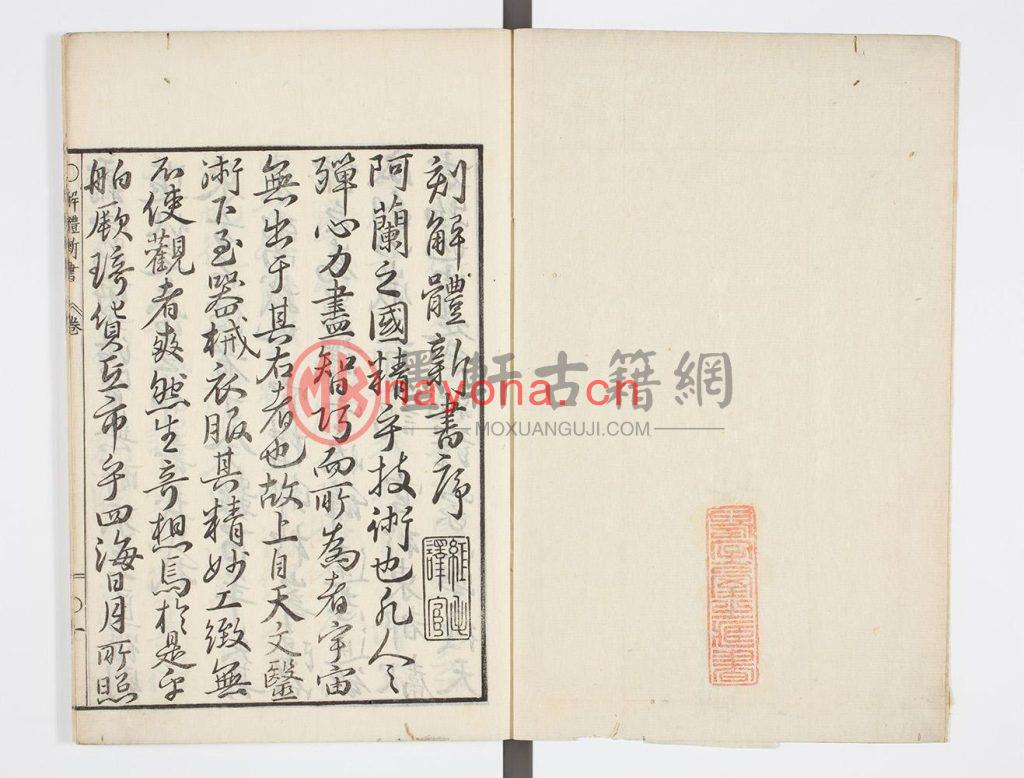 刻解體新書序
譯官
阿蘭之國精乎技術也凡人之
殫心力盡智巧而所為者宇宙
無出于其右者也故上自天文醫
術下至器械衣服其精妙工緻無
不使觀者爽然生奇想焉於是乎
舶厥琦貨互市乎四海日月所照
〇解體新書 卷
墨軒古籍網
nayona.cn
MOXUANGUJI.COM